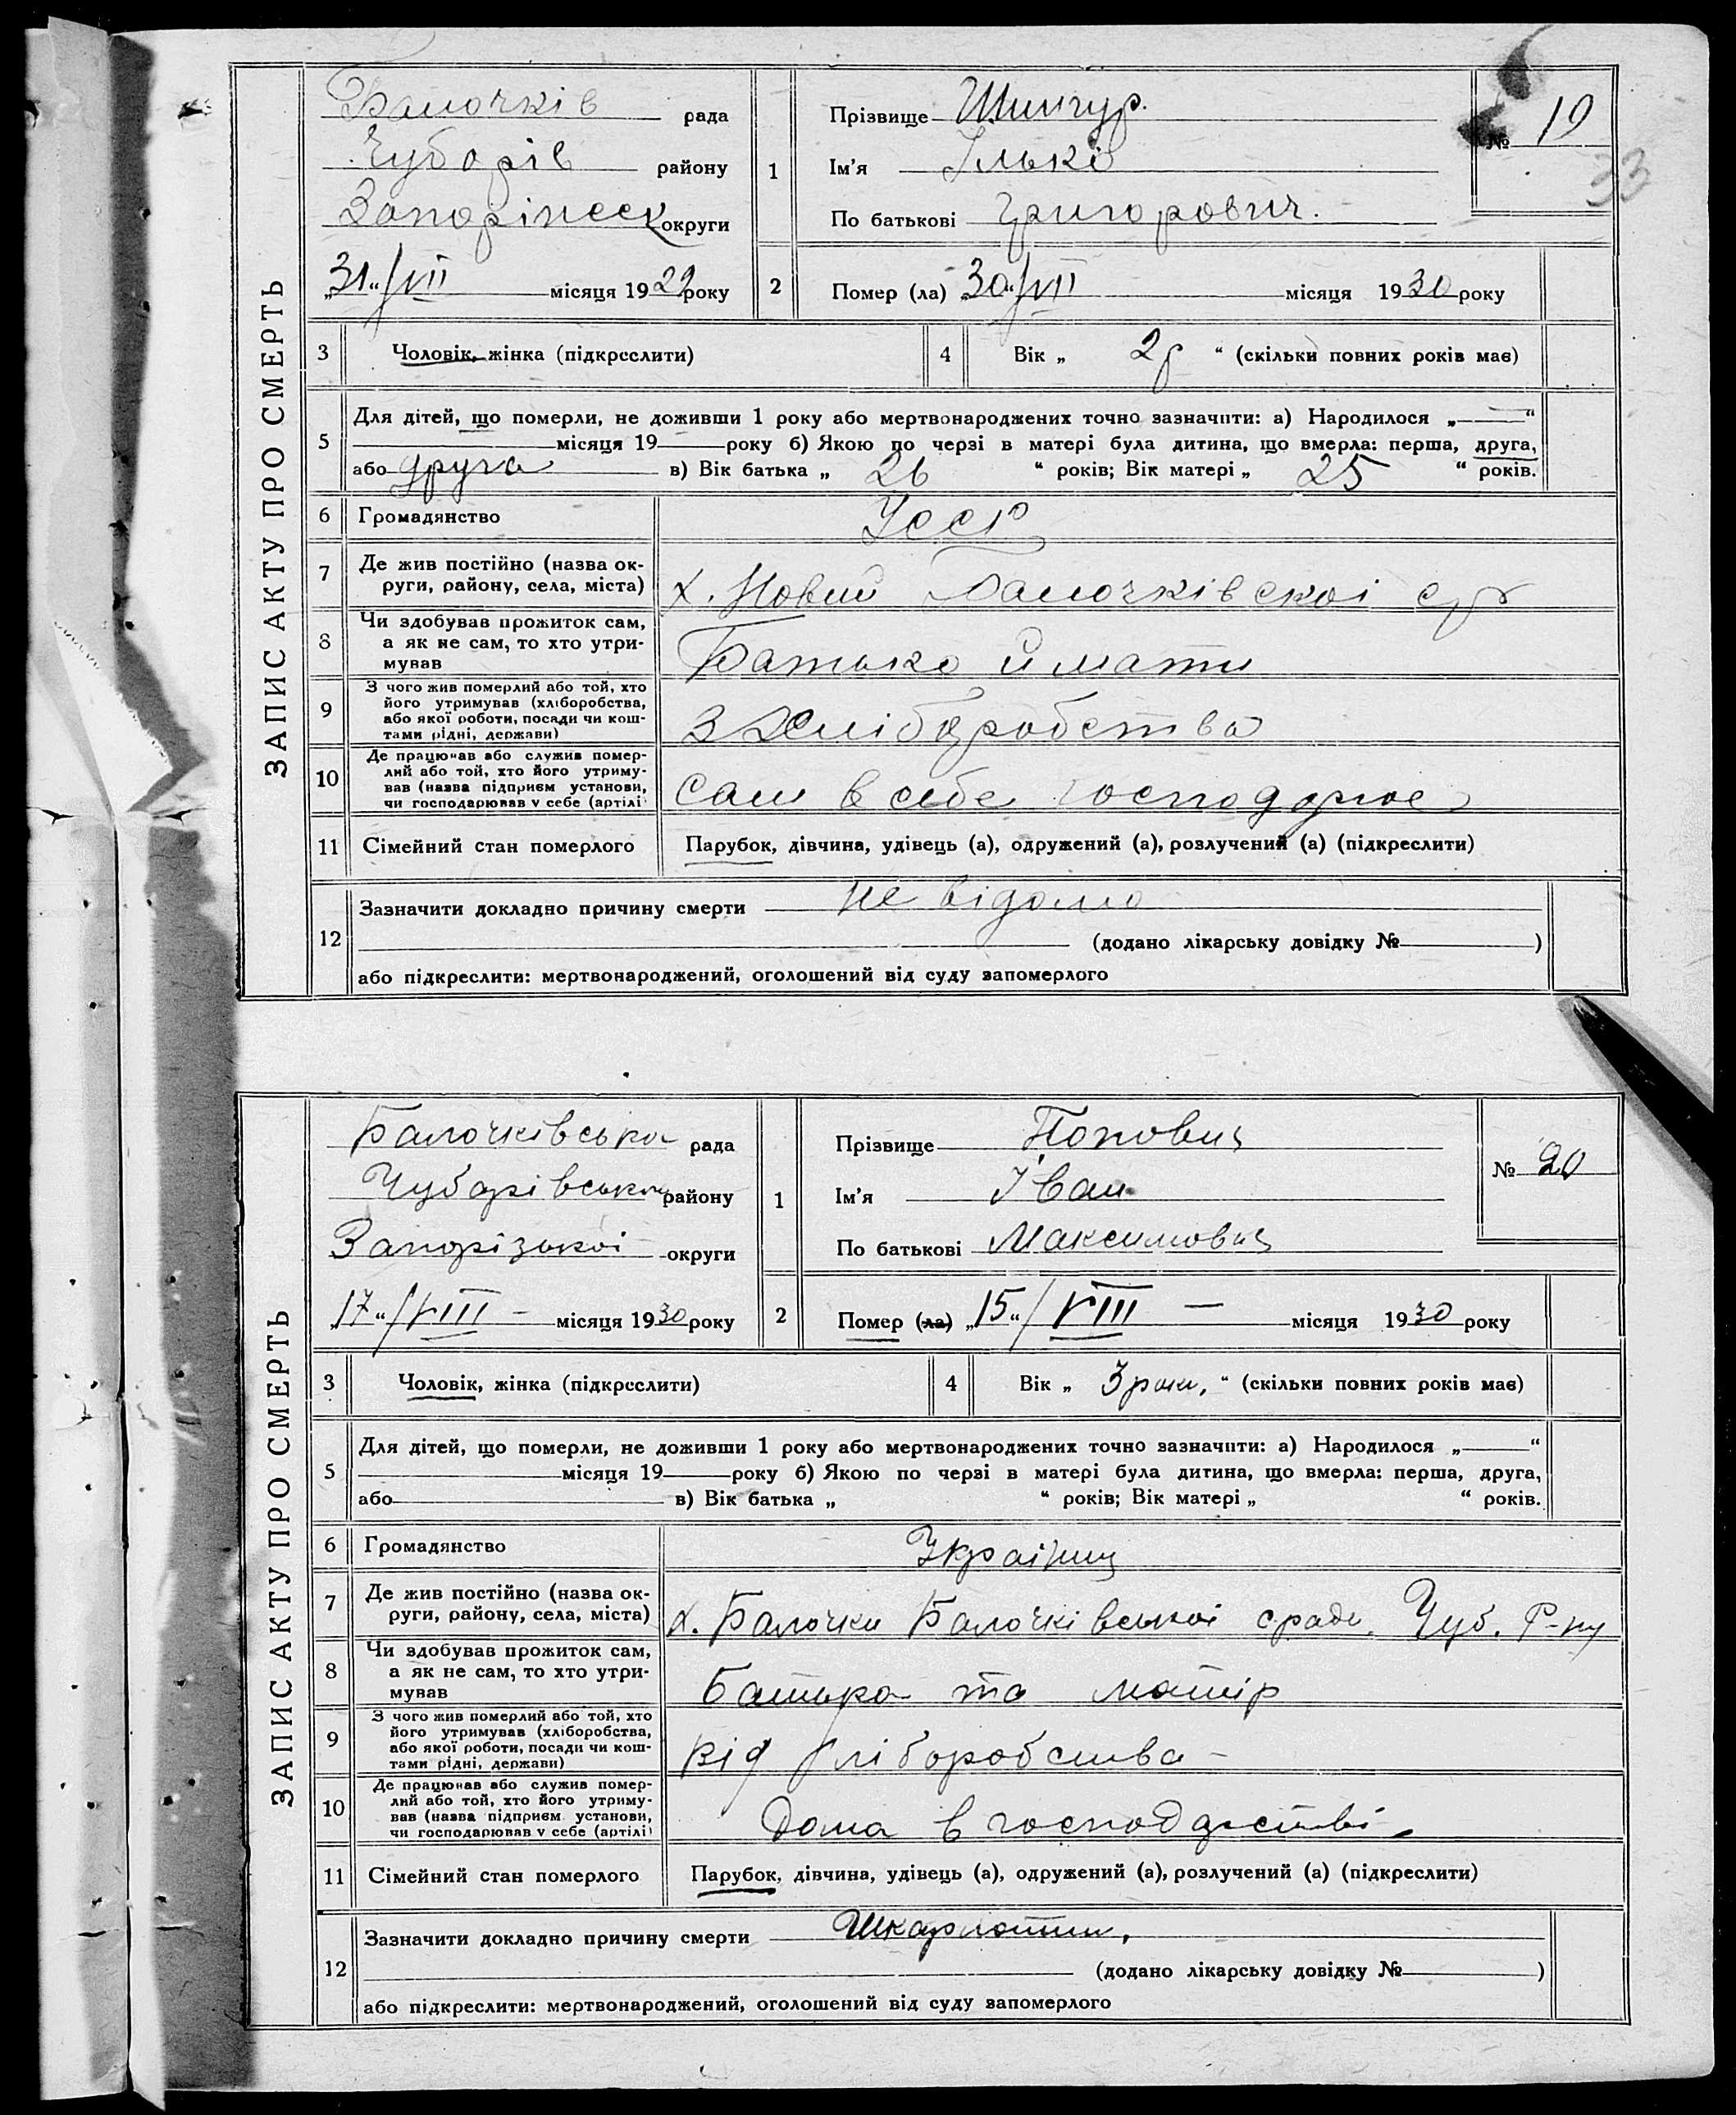 ЗАПИС АКТУ ПРО СМЕРТЬ
Балочків рада
Чубарів району
округи
„31“/VII місяця 1929 року
1
Прізвище
Ім'я Ілько
По батькові Григорович.
№ 19
33
2
Помер (ла) „30“/VII місяця 1930 року
3 Чоловік, жінка (підкреслити)
4 Вік „ 2 р “ (скільки повних років має)
5 Для дітей, що померли, не доживши 1 року або мертвонароджених точно зазначити: а) Народилося „—“
місяця 19 року б) Якою по черзі в матері була дитина, що вмерла: перша, друга,
або друга в) Вік батька „ 26 “ років; Вік матері „ 25 “ років.
6 Громадянство УССР
7 Де жив постійно (назва ок-
руги, району, села, міста) х. Новий Балочківскоі с/р
8 Чи здобував прожиток сам,
а як не сам, то хто утри-
мував Батько й мати
9 З чого жив померлий або той, хто
його утримував (хліборобства,
або якої роботи, посади чи кош-
тами рідні, держави) З Хліборобства
10 Де працював або служив помер-
лий або той, хто його утриму-
вав (назва підприєм установи,
чи господарював у себе (артілі) Сам в себе господарює
11 Сімейний стан померлого Парубок, дівчина, удівець (а), одружений (а), розлучений (а) (підкреслити)
12 Зазначити докладно причину смерти не відомо
(додано лікарську довідку № )
або підкреслити: мертвонароджений, оголошений від суду запомерлого
ЗАПИС АКТУ ПРО СМЕРТЬ
Балочківська рада
Чубарівського району
Запорізькоі округи
„17“/VIII – місяця 1930 року
1
Прізвище Попович
Ім'я Іван
По батькові Максимович
№ 20
2
Помер (ла) „15“/VIII — місяця 1930 року
3 Чоловік, жінка (підкреслити)
4 Вік „ 3 роки, “ (скільки повних років має)
5 Для дітей, що померли, не доживши 1 року або мертвонароджених точно зазначити: а) Народилося „—“
місяця 19 року б) Якою по черзі в матері була дитина, що вмерла: перша, друга,
або в) Вік батька „ “ років; Вік матері „ “ років.
6 Громадянство Украінец
7 Де жив постійно (назва ок-
руги, району, села, міста) х. Балочки Балочківськоі сради, Чуб. Р-ну
8 Чи здобував прожиток сам,
а як не сам, то хто утри-
мував Батько та матір
9 З чого жив померлий або той, хто
його утримував (хліборобства,
або якої роботи, посади чи кош-
тами рідні, держави) Від хліборобства –
10 Де працював або служив помер-
лий або той, хто його утриму-
вав (назва підприєм установи,
чи господарював у себе (артілі) Дома в господарстві.
11 Сімейний стан померлого Парубок, дівчина, удівець (а), одружений (а), розлучений (а) (підкреслити)
12 Зазначити докладно причину смерти Шкарлатин,
(додано лікарську довідку № )
або підкреслити: мертвонароджений, оголошений від суду запомерлого